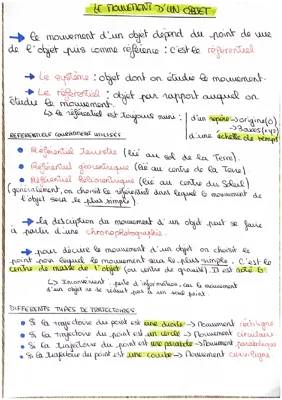 LE MOUVEMENT D'UN OBJET
→ Le mouvement d'un objet dépend du point de vue
de l'objet pris comme référence : C'est le référentiel
→ Le système : objet dont on étudie le mouvement.
→ Le référentiel : objet par rapport auquel on
étudie le mouvement.
↳ à référentiel est toujours muni : d'un repère → origine (O)
→ 3 axes (x,y,z)
d'une échelle de temps
REFERENTIELS COURAMMENT UTILISES
• Référentiel terrestre (lié au sol de la Terre)
• Référentiel géocentrique (lié au centre de la Terre)
• Référentiel héliocentrique (lié au centre du Soleil)
(généralement, on choisit le référentiel dans lequel le mouvement de
l'objet sera le plus simple).
→ la description du mouvement d'un objet peut se faire
à partir d'une chronophotographie.
→ pour décrire le mouvement d'un objet on choisit le
point pour lequel le mouvement sera le plus simple. C'est le
centre de masse de l'objet (ou centre de gravité). Il est noté G
↳ Inconvénient : perte d'information, car le mouvement
d'un objet ne se réduit pas à un seul point.
DIFFERENTS TYPES DE TRAJECTOIRES
• Si la trajectoire du point est une droite → Mouvement rectiligne
• Si la trajectoire du point est un cercle → Mouvement circulaire
• Si la trajectoire du point est une parabole → Mouvement parabolique
• Si la trajectoire du point est une courbe → Mouvement curviligne